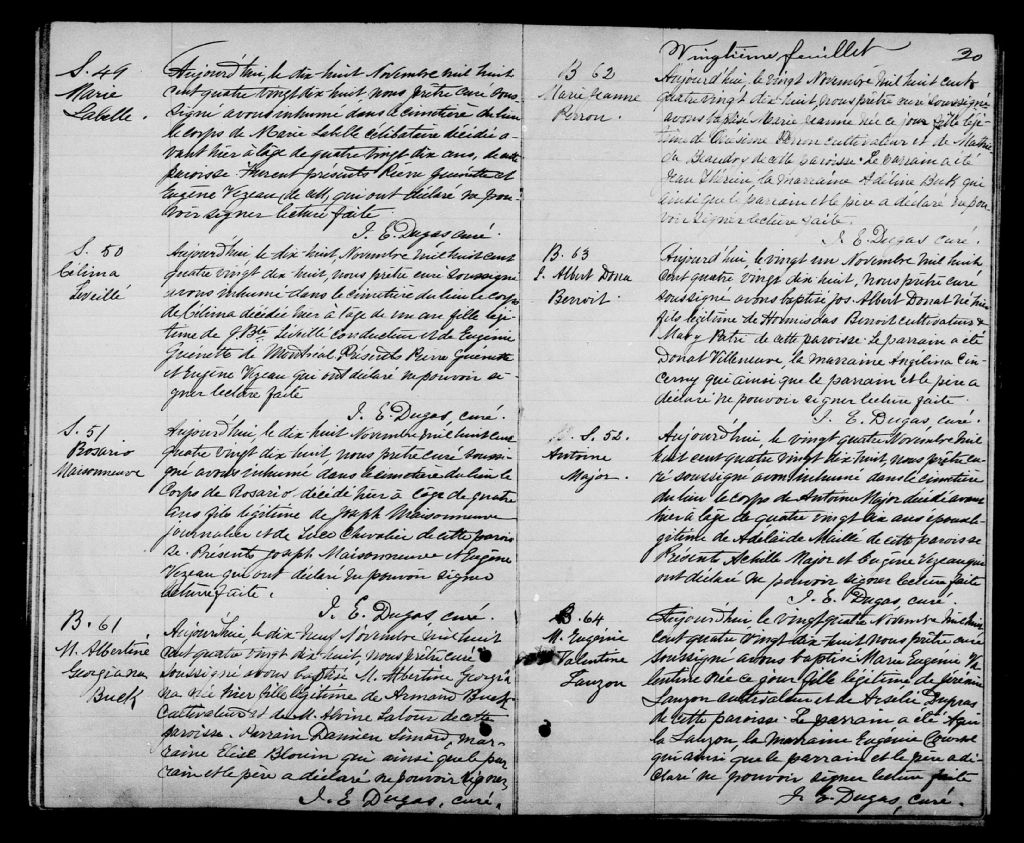 S. 49
Marie
Labelle.
Aujourd'hui, le dix huit Novembre mil huit
cent quatre vingt dix huit, nous prêtre curé sous-
signé avons inhumé dans le cimetière du lieu
le corps de Marie Labelle célibataire décédée a-
vant hier à l'âge de quatre vingt dix ans, de cette
paroisse. Furent présents Pierre Guenette et
Eugène Vezeau, de , qui ont déclaré ne pou-
voir signer lecture faite
J. E. Dugas curé.
S. 50
Célima
Leveillé
Aujourd'hui, le dix huit Novembre mil huit cent
quatre vingt dix huit, nous prêtre curé soussigné
avons inhumé dans le cimetière du lieu le corps
de Célima décédée hier à l'âge de un an fille légi-
time de J. Bte Leveillé conducteur et de Eugénie
Guenette de Montréal Présents Pierre Guenette
et Eugène Vezeau qui ont déclaré ne pouvoir si-
gner lecture faite
J. E. Dugas, curé.
S. 51
Rosario
Maisonneuve
Aujourd'hui, le dix huit Novembre mil huit cent
quatre vingt dix huit, nous prêtre curé soussi-
gné avons inhumé dans le cimetière du lieu le
Corps de Rosario décédé hier à l'âge de quatre
ans fils légitime de Joseph Maisonneuve
journalier et de Chevalier de cette parois
se. Présents Joseph Maisonneuve et Eugène
Vezeau qui ont déclaré ne pouvoir signer
lecture faite.
J. E. Dugas, curé.
B. 61
M. Albertine
Georgiana
Buck
Aujourd'hui, le dix-neuf Novembre mil huit
cent quatre vingt dix huit, nous prêtre curé
soussigné avons baptisé M. Albertine Georgia
na née hier fille légitime de Armand Buck
cultivateur et de M. Alvine Latour de cette
paroisse. Parrain Damien Simard, mar-
raine Elise Blouin qui ainsi que le par
rain et le père a déclaré ne pouvoir signer
J. E. Dugas, curé.
Vingtième feuillet
20
B 62
Marie Jeanne
Perron.
Aujourd'hui, le vingt Novembre mil huit cent
quatre vingt dix huit, nous prêtre curé soussigné
avons baptisé Marie Jeanne née ce jour fille légi-
time de Onésime Perron cultivateur et de
Beaudry de cette paroisse. Le parrain a été
Jean Thérien, la marraine Adéline Buck qui
ainsi que le parrain et le père a déclaré ne pou-
voir signer lecture faite.
J. E. Dugas, curé.
B. 63
J. Albert Dona
Benoit.
Aujourd'hui, le vingt un Novembre mil huit
cent quatre vingt dix huit, nous prêtre curé
soussigné avons baptisé Jos. Albert Donat né hier
fils légitime de Hormisdas Benoit cultivateur &
Mary de cette paroisse. Le parrain a été
Donat Villeneuve, la marraine Angelina Cin-
cerny qui ainsi que le parrain et le père a
déclaré ne pouvoir signer lecture faite.
J. E. Dugas, curé.
S. 52.
Antoine
Major.
Aujourd'hui, le vingt quatre Novembre mil
huit cent quatre vingt dix huit, nous prêtre cu-
ré soussigné avons inhumé dans le cimetière
du lieu le corps de Antoine Major décédé avant
hier à l'âge de quatre vingt dix ans époux lé-
gitime de Adélaïde Maille de cette paroisse
Présents Achille Major et Eugène Vezeau qui
ont déclaré ne pouvoir signer lecture faite
J. E. Dugas, curé.
B. 64
M. Eugénie
Valentine
Lauzon
Aujourd'hui, le vingt quatre Novembre mil huit
cent quatre vingt dix huit nous prêtre curé
soussigné avons baptisé Marie Eugénie Va
lentine née ce jour fille légitime de
Lauzon cultivateur et de Dupras
de cette paroisse. Le parrain a été Aqui
la Lauzon, la marraine Eugénie
qui ainsi que le parrain et le père a dé-
claré ne pouvoir signer lecture faite
J. E. Dugas, curé.